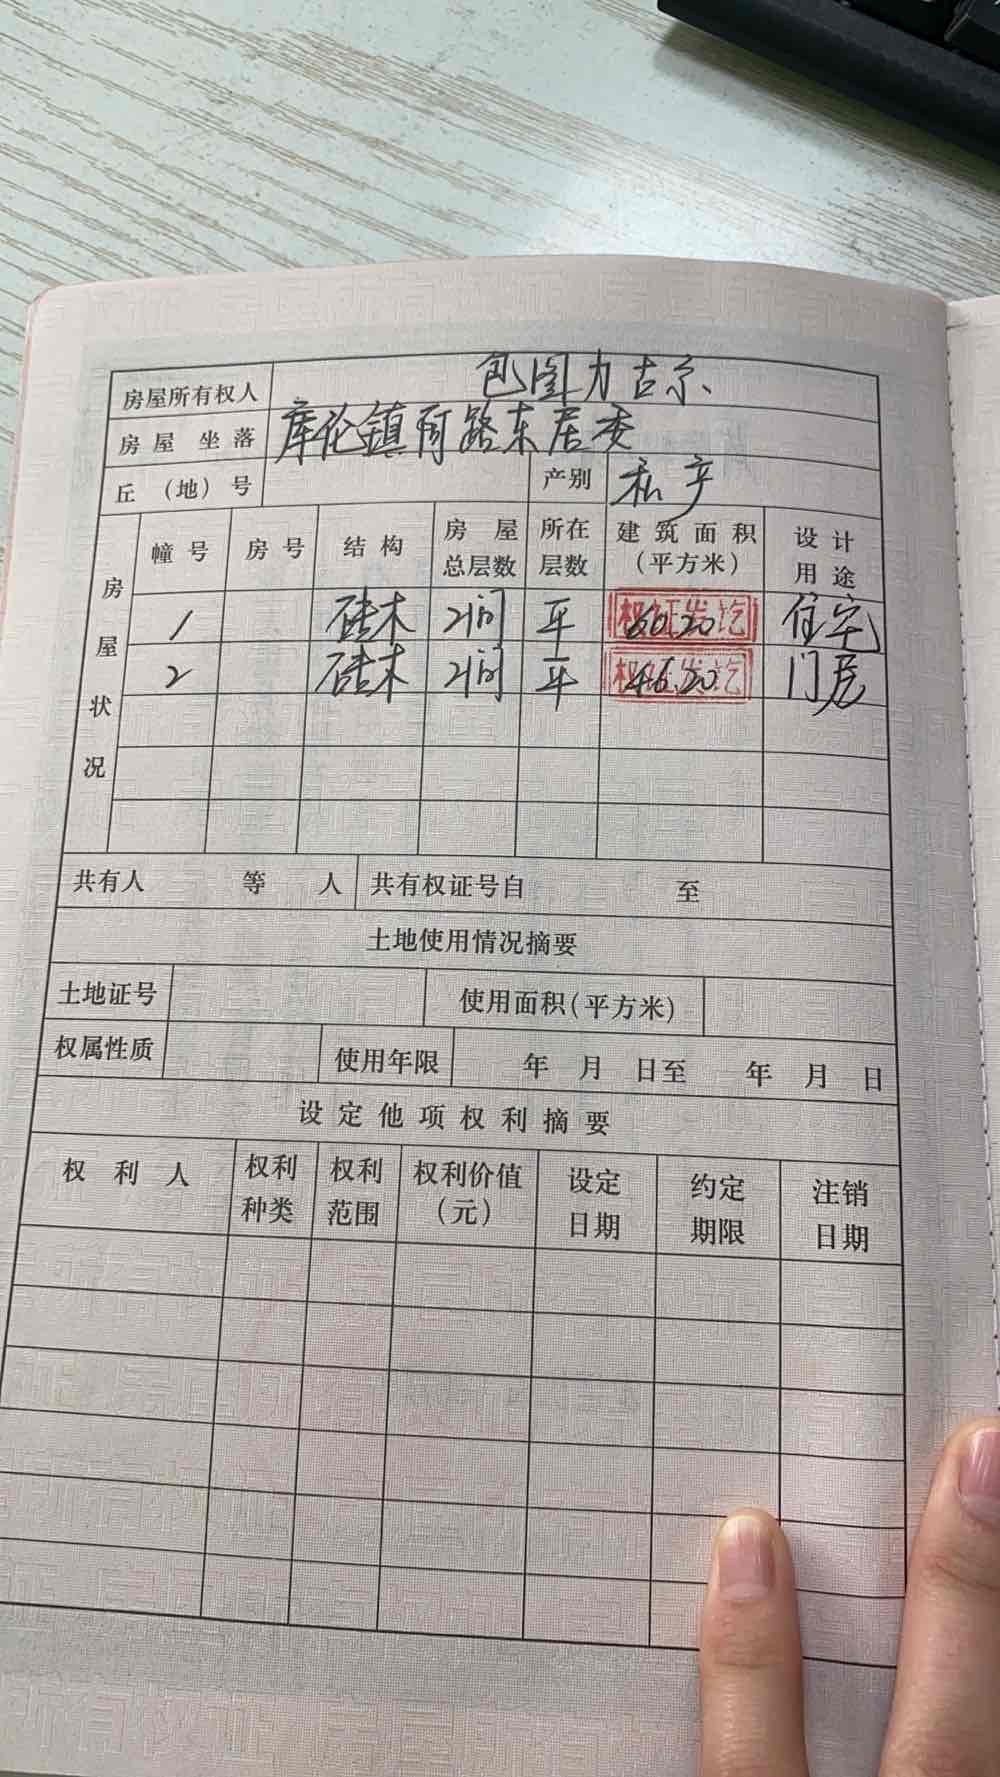 房屋所有权人 包图力古尔
房屋坐落 库伦镇 路东居委
丘（地）号 产别 私产
房屋状况 幢号 房号 结构 房屋总层数 所在层数 建筑面积（平方米） 设计用途
1 砖木 2间 平 60.20 住宅
2 砖木 2间 平 46.20 门房
共有人 等 人 共有权证号自 至
土地使用情况摘要
土地证号 使用面积(平方米)
权属性质 使用年限 年 月 日至 年 月 日
设定他项权利摘要
权利人 权利种类 权利范围 权利价值（元） 设定日期 约定期限 注销日期